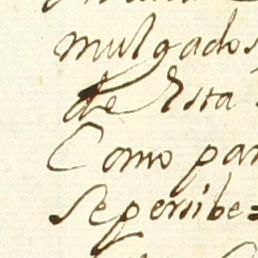 mulgados
de Esta
Como par
Sepersibe=